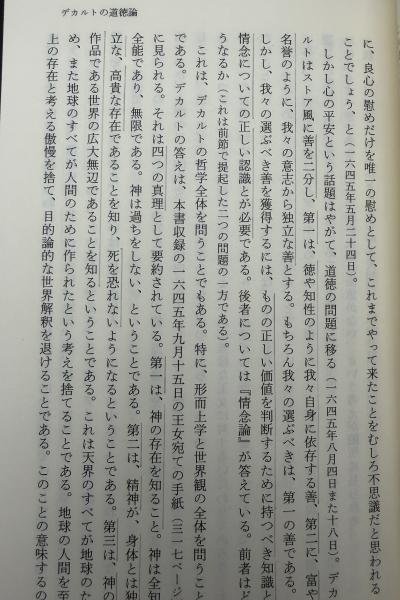 デカルトの道徳論
に、良心の慰めだけを唯一の慰めとして、これまでやって来たことをむしろ不思議だと思われる
ことでしょう、と（一六四五年五月二十四日）。
しかし心の平安という話題はやがて、道徳の問題に移る（一六四五年八月四日また十八日）。デカ
ルトはストア風に善を二分し、第一は、徳や知性のように我々自身に依存する善、第二に、富や
名誉のように、我々の意志から独立な善とする。もちろん我々の選ぶべきは、第一の善である。
しかし、我々の選ぶべき善を獲得するには、ものの正しい価値を判断するために持つべき知識と
情念についての正しい認識とが必要である。後者については『情念論』が答えている。前者はど
うなるか（これは前節で提起した二つの問題の一方である）。
これは、デカルトの哲学全体を問うことでもある。特に、形而上学と世界観の全体を問うこと
である。デカルトの答えは、本書収録の一六四五年九月十五日の王女宛ての手紙（三一七ページ
に見られる。それは四つの真理として要約されている。第一は、神の存在を知ること。神は全知
全能であり、無限である。神は過ちをしない、ということである。第二は、精神が、身体とは独
立な、高貴な存在であることを知り、死を恐れないようになるということである。第三は、神の
作品である世界の広大無辺であることを知るということである。これは天界のすべてが地球のた
め、また地球のすべてが人間のために作られたという考えを捨てることである。地球の人間を至
上の存在と考える傲慢を捨て、目的論的な世界解釈を退けることである。このことの意味するの